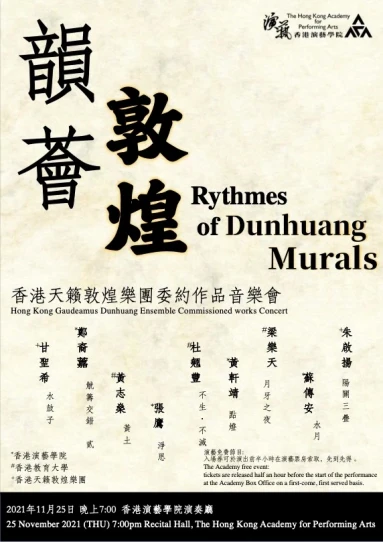 The Hong Kong Academy
for
Performing Arts
香港演藝學院
韻薈
敦煌
Rythmes
of Dunhuang
Murals
香港天籟敦煌樂團委約作品音樂會
Hong Kong Gaudeamus Dunhuang Ensemble Commissioned works Concert
*朱啟揚 陽關三疊
蘇傳安 水月
#梁樂天 月牙之夜
黃軒靖 點燈
杜翹豐 不生·不滅
張鷹 淨思
黃志燊 黃土
鄭裔藹 觥籌交錯 貳
+甘聖希 水鼓子
*香港演藝學院
#香港教育大學
+香港天籟敦煌樂團
演藝免費節目:
入場券可於演出前半小時在演藝票房索取，先到先得。
The Academy free event:
tickets are released half an hour before the start of the performance
at the Academy Box Office on a first-come, first served basis.
2021年11月25日 晚上7:00 香港演藝學院演奏廳
25 November 2021 (THU) 7:00pm Recital Hall, The Hong Kong Academy for Performing Arts